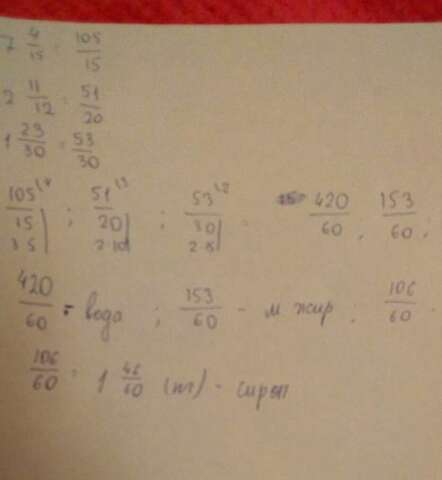 7 4/15 = 105/15
2 11/12 = 51/20
1 23/30 = 53/30
105/15 ; 51/20 ; 53/30 = 420/60 , 153/60 ;
420/60 - вода ; 153/60 - м жир ; 106/60 -
106/60 = 1 46/60 (кг) - сироп